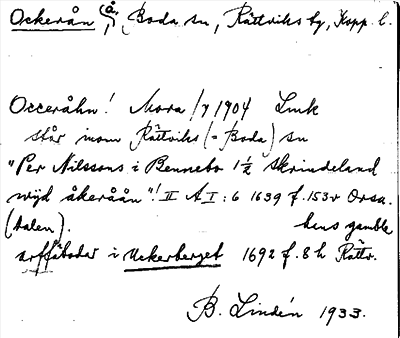 Ockerån (å), Boda sn, Rättviks tg, Kopp. l.
Occeråhn! Mora /7 1904 Lmk
står inom Rättviks (= Boda) sn
"Per Nilssons i Bennebo 1½ skrindeland
wijd åkeråån"! II A I : 6 1639 f. 153v Orsa.
(dalen). hens gamble
arffäbodar i Uckerberget 1692 f. 8 h Rättv.
B. Lindén 1933.